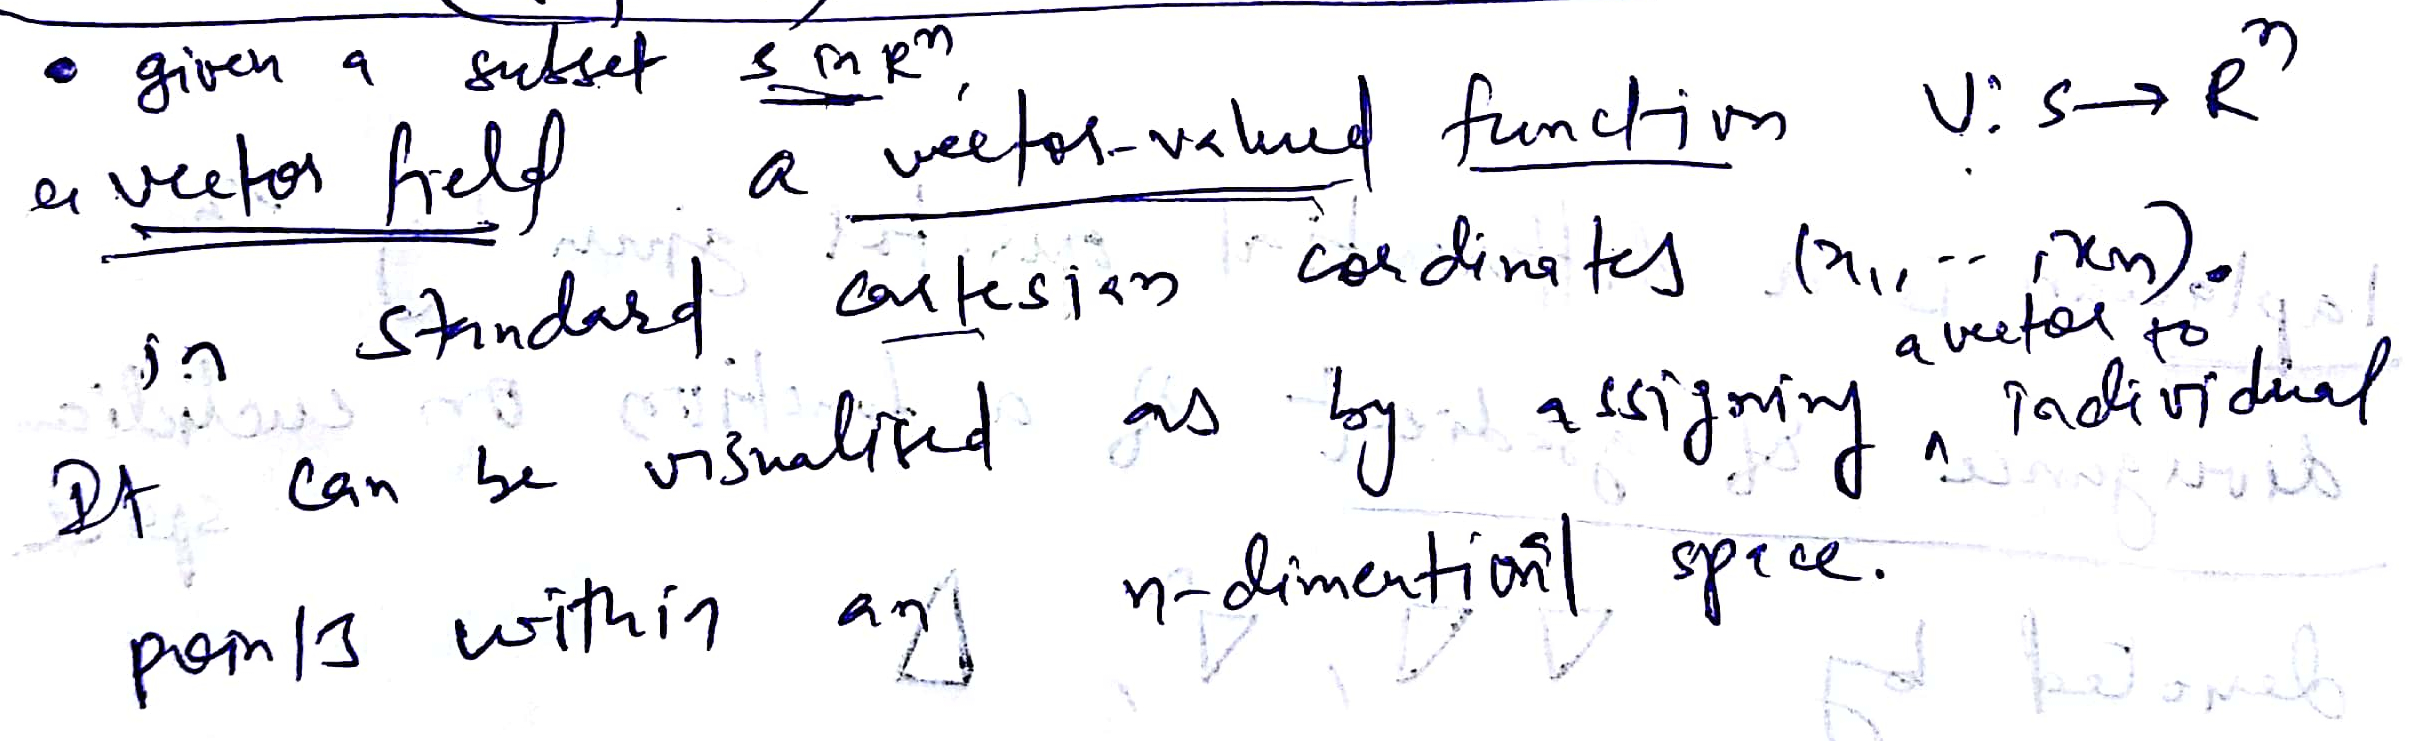 • given a subset S in R^n,
a vector field a vector-valued function V: S → R^n
in standard cartesian cordinates (x1, -- , xn).
It can be visualised as by assigning a vector to individual
points within an n-dimentional space.